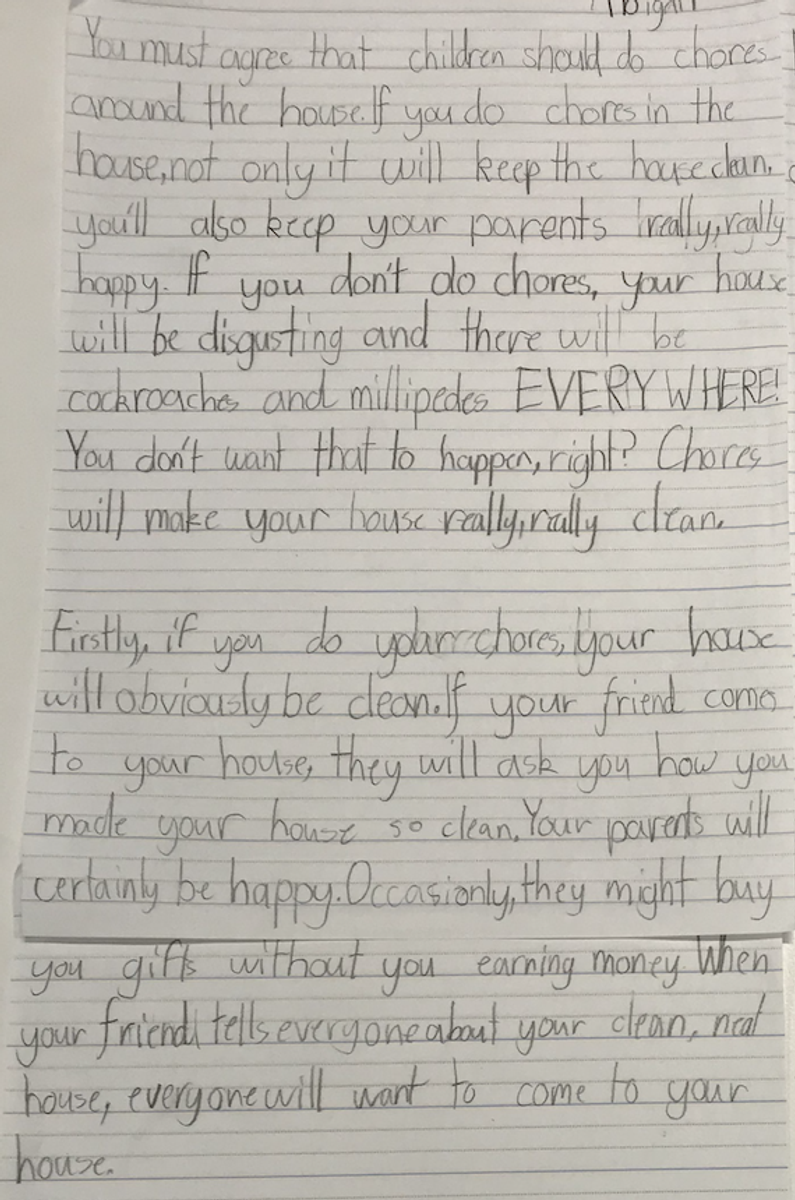 Abigail
You must agree that children should do chores
around the house. If you do chores in the
house, not only it will keep the house clean,
you'll also keep your parents really, really
happy. If you don't do chores, your house
will be disgusting and there will be
cockroaches and millipedes EVERYWHERE!
You don't want that to happen, right? Chores
will make your house really, really clean.
Firstly, if you do your chores, your house
will obviously be clean. If your friend comes
to your house, they will ask you how you
made your house so clean. Your parents will
certainly be happy. Occasionly, they might buy
you gifts without you earning money When
your friend tells everyone about your clean, neat
house, everyone will want to come to your
house.